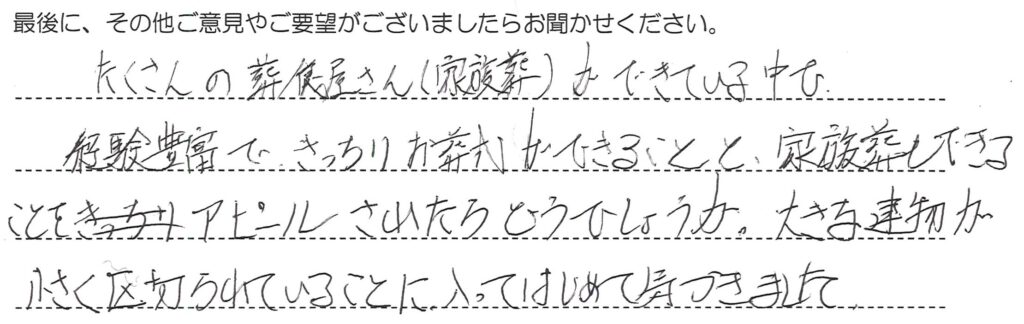 最後に、その他ご意見やご要望がございましたらお聞かせください。
たくさんの葬儀屋さん(家族葬)ができている中で
経験豊富で、きっちりお葬式ができることと、家族葬もできる
ことをきっちりアピールされたらどうでしょうか。大きな建物が
小さく区切られていることに入ってはじめて気づきました。